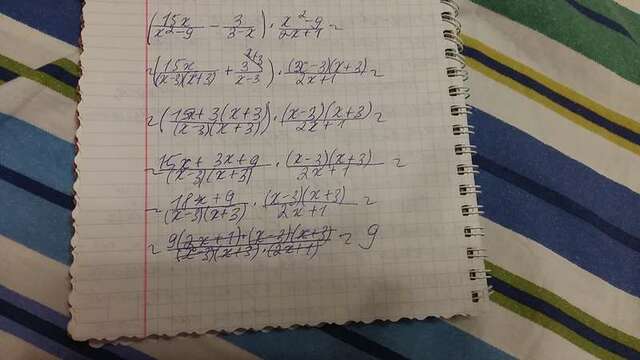 (15x/(x²-9) - 3/(3-x)) · (x²-9)/(2x+1) =
= (15x/((x-3)(x+3)) + 3/(x-3)) · ((x-3)(x+3))/(2x+1) =
= ((15x+3(x+3))/((x-3)(x+3))) · ((x-3)(x+3))/(2x+1) =
= (15x+3x+9)/((x-3)(x+3)) · ((x-3)(x+3))/(2x+1) =
= (18x+9)/((x-3)(x+3)) · ((x-3)(x+3))/(2x+1) =
= (9(2x+1)·(x-3)(x+3))/((x-3)(x+3)(2x+1)) = 9